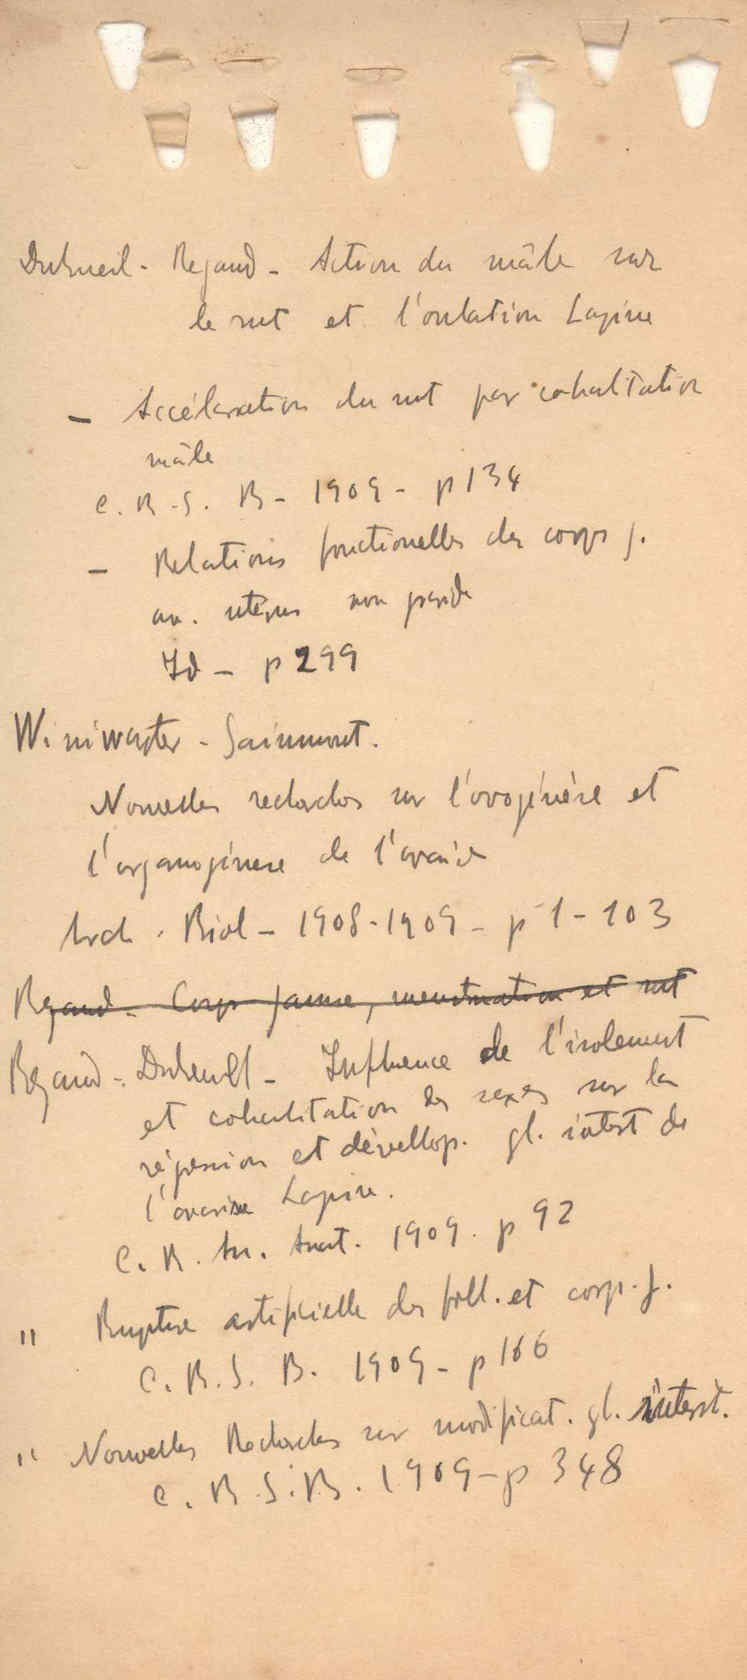 Dubreuil - Regaud - Action du mâle sur
le rut et l'ovulation Lapine
- Accélération du rut par cohabitation
mâle
C. R. S. B - 1909 - p 134
- Relations fonctionelles des corps j.
av. utérus non gravide
Id - p 299
Winiwarter - Sainmont.
Nouvelles recherches sur l'ovogénèse et
l'organogénèse de l'ovaire
Arch. Biol - 1908-1909 - p 1 - 103
Regaud - Corps jaune, menstruation et rut
Regaud - Dubreuil - Influence de l'isolement
et cohabitation des sexes sur la
régression et dévellop. gl. interst de
l'ovaire Lapine.
C. R. As. Anat. 1909. p 92
" Rupture artificielle des foll. et corps. j.
C. R. S. B. 1909 - p 166
" Nouvelles Recherches sur modificat. gl. interst.
C. R. S. B. 1909 - p 348